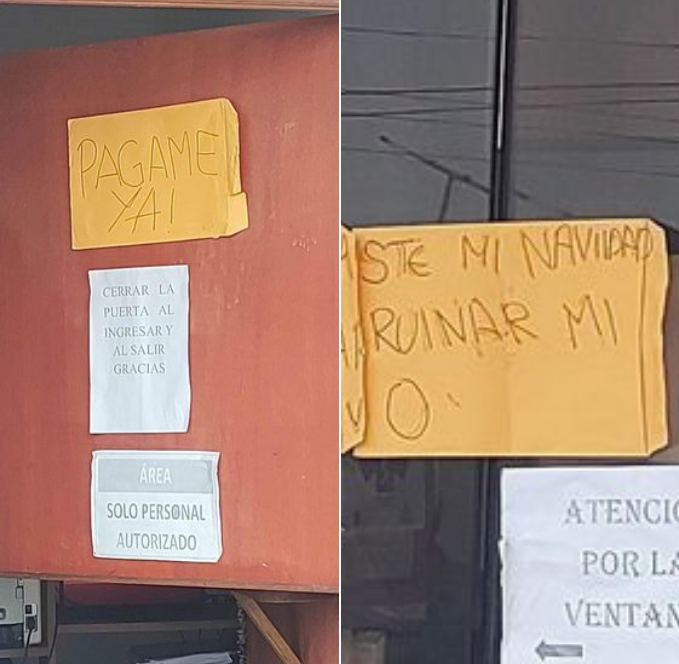 PAGAME
YA!
CERRAR LA
PUERTA AL
INGRESAR Y
AL SALIR
GRACIAS
ÁREA
SOLO PERSONAL
AUTORIZADO
ASTE MI NAVIDAD
ARRUINAR MI
VO.
ATENCIO
POR LA
VENTAN